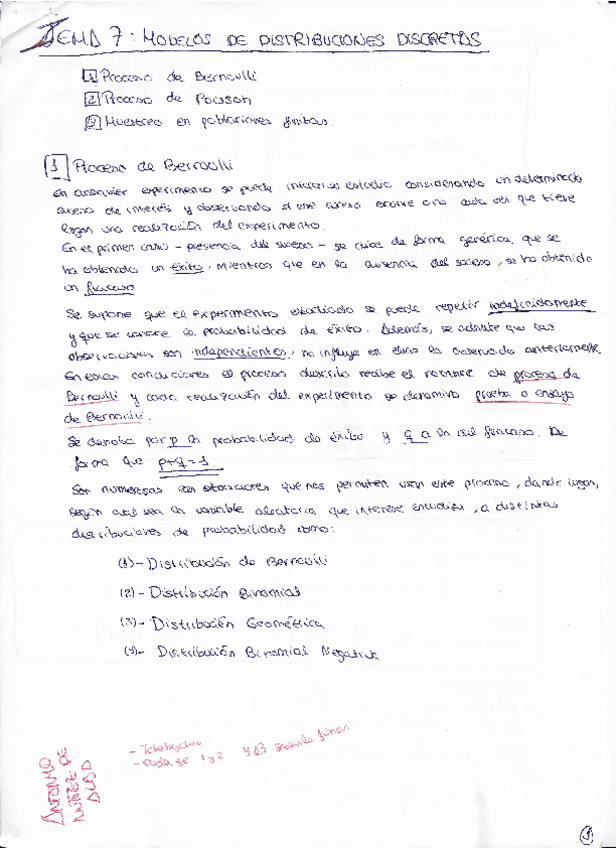 TEMA 7: MODELOS DE DISTRIBUCIONES DISCRETAS
1 Proceso de Bernoulli
2 Proceso de Poisson
3 Muestreo en poblaciones finitas.
1 Proceso de Bernoulli
En cualquier experimento se puede iniciar su estudio considerando un determinado
suceso de interés y observando si ese suceso ocurre o no cada vez que tiene
lugar una realización del experimento.
En el primer caso - presencia del suceso - se dice de forma genérica, que se
ha obtenido un éxito, mientras que en la ausencia del suceso, se ha obtenido
un fracaso
Se supone que el experimento estudiado se puede repetir indefinidamente
y que se conoce la probabilidad de éxito. Además, se admite que las
observaciones son independientes, no influye en ellas lo observado anteriormente.
En estas condiciones el proceso descrito recibe el nombre de proceso de
Bernoulli y cada realización del experimento se denomina prueba o ensayo
de Bernoulli.
Se denota por p la probabilidad de éxito y q a la del fracaso. De
forma que p+q=1
Son numerosas las situaciones que nos permiten usar este proceso, dando lugar,
según cual sea la variable aleatoria que interese estudiar, a distintas
distribuciones de probabilidad como:
(1)- Distribución de Bernoulli
(2)- Distribución Binomial
(3)- Distribución Geométrica
(4)- Distribución Binomial Negativa
- 
- 1 y 2 y 3
ANTONIO
NUÑEZ DE
1